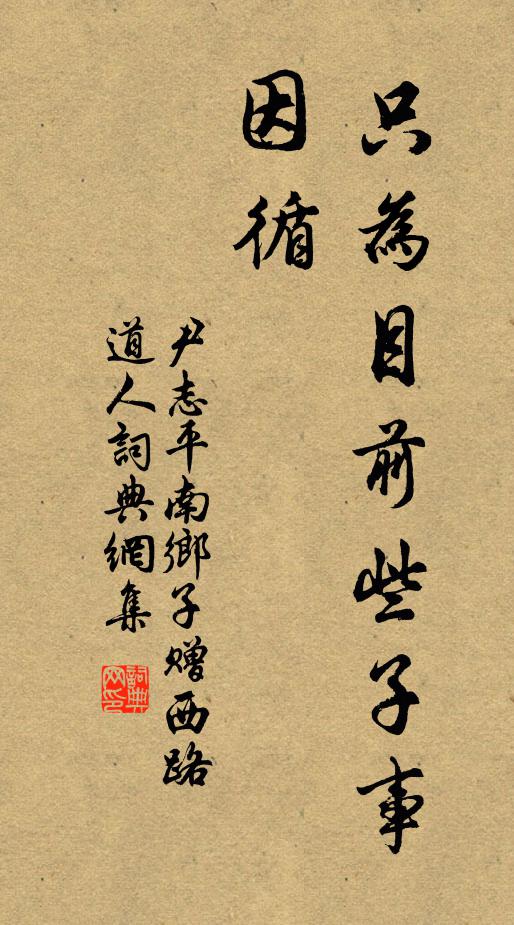 只為目前些子事
因循
尹志平南鄉子贈西路
道人詞典網集
詞典
网印